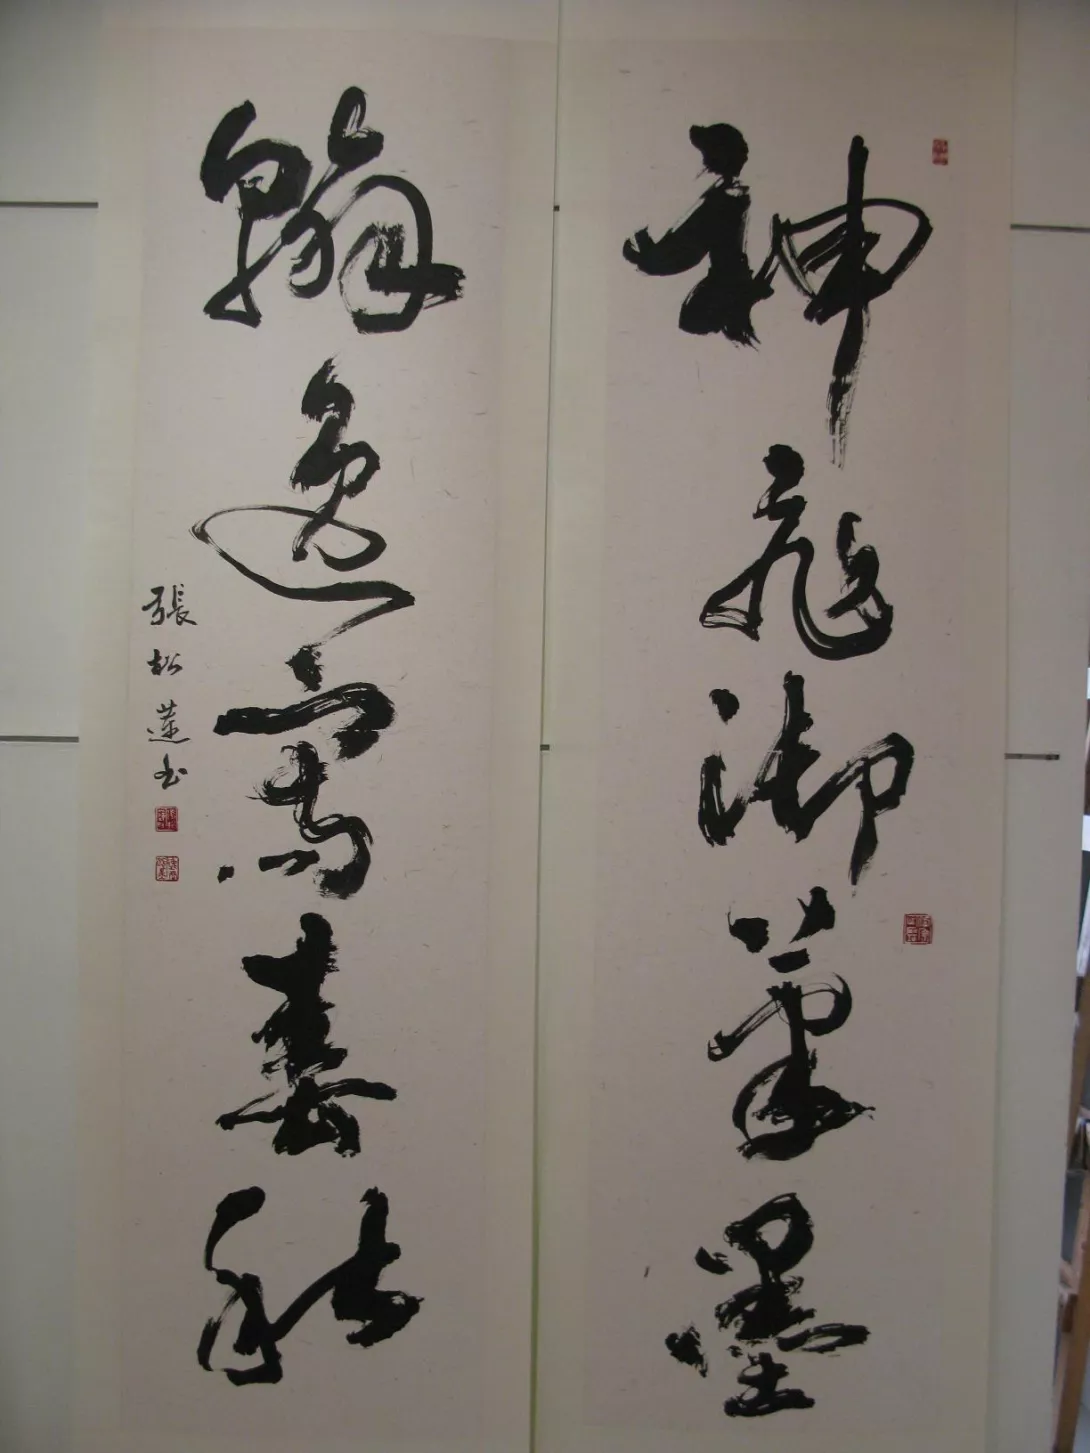 神飛御筆墨
翰逸寫春秋
張松蓮书